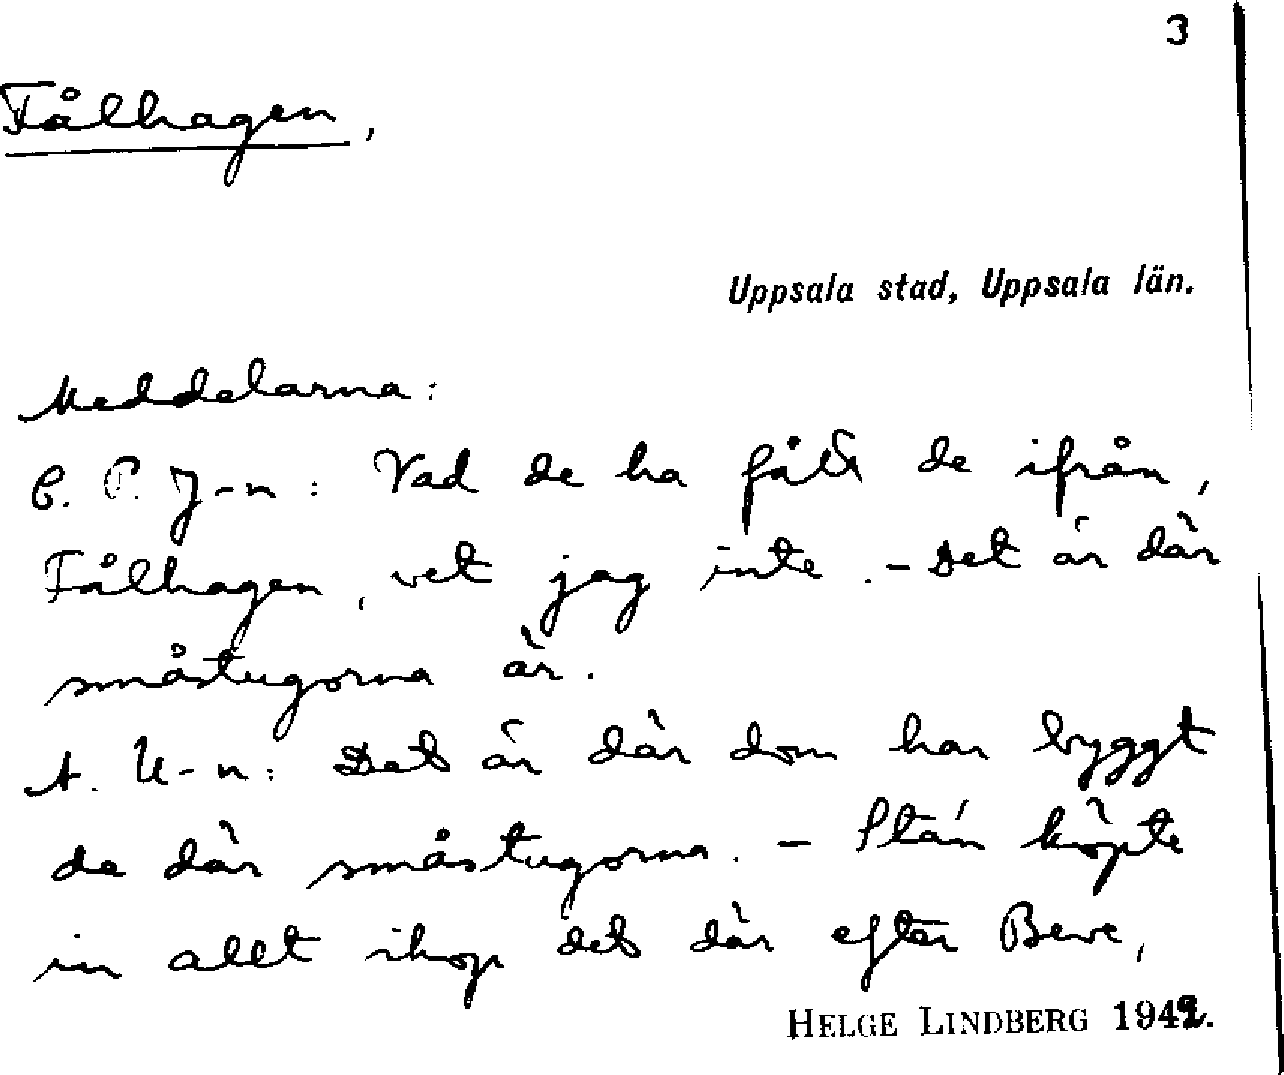 3
Fålhagen,
Uppsala stad, Uppsala län.
Meddelarna:
C. P. J-n: Vad de ha fått de ifrån,
Fålhagen, vet jag inte. - Det är där
småstugorna är.
A. U-n: Det är där dom har byggt
de där småstugorna. - Stán köpte
in allt ihop det där efter Beve,
HELGE LINDBERG 1942.